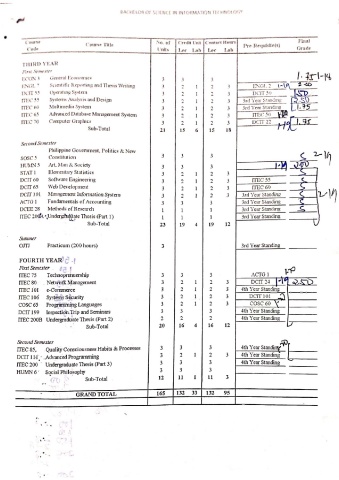 BACHELOR OF SCIENCE IN INFORMATION TECHNOLOGY
Course Code Course Title No. of Units Credit Unit Lec Lab Contact Hours Lec Lab Pre-Requisite(s) Final Grade
THIRD YEAR
First Semester
ECON 3 General Economics 3 3 3
ENGL 7 Scientific Reporting and Thesis Writing 3 2 1 2 3 ENGL 2
DCIT 55 Operating System 3 2 1 2 3 DCIT 50
ITEC 55 Systems Analysis and Design 3 2 1 2 3 3rd Year Standing
ITEC 60 Multimedia System 3 2 1 2 3 3rd Year Standing 1.75
ITEC 65 Advanced Database Management System 3 2 1 2 3 ITEC 50
ITEC 70 Computer Graphics 3 2 1 2 3 DCIT 22 1.75
Sub-Total 21 15 6 15 18
Second Semester
Philippine Government, Politics & New
SOSC 5 Constitution 3 3 3
HUMN 5 Art, Man & Society 3 3 3
STAT 1 Elementary Statistics 3 2 1 2 3
DCIT 60 Software Engineering 3 2 1 2 3 ITEC 55
DCIT 65 Web Development 3 2 1 2 3 ITEC 60
DCIT 101 Management Information System 3 2 1 2 3 3rd Year Standing
ACTG 1 Fundamentals of Accounting 3 3 3 3rd Year Standing
DCEE 28 Methods of Research 1 1 1 3rd Year Standing
ITEC 200A Undergraduate Thesis (Part 1) 1 1 1 3rd Year Standing
Sub-Total 23 19 4 19 12
Summer
OJTI Practicum (200 hours) 3 3rd Year Standing
FOURTH YEAR
First Semester
ITEC 75 Technopreneurship 3 3 3 ACTG 1
ITEC 80 Network Management 3 2 1 2 3 DCIT 24 2.50
ITEC 101 e-Commerce 3 2 1 2 3 4th Year Standing
ITEC 106 Systems Security 3 2 1 2 3 DCIT 101
COSC 65 Programming Languages 3 2 1 2 3 COSC 60
DCIT 199 Inspection Trip and Seminars 3 3 3 4th Year Standing
ITEC 200B Undergraduate Thesis (Part 2) 2 2 2 4th Year Standing
Sub-Total 20 16 4 16 12
Second Semester
ITEC 85, Quality Consciousness Habits & Processes 3 3 3 4th Year Standing
DCIT 111 Advanced Programming 3 2 1 2 3 4th Year Standing
ITEC 200 Undergraduate Thesis (Part 3) 3 3 3 4th Year Standing
HUMN 6 Social Philosophy 3 3 3
Sub-Total 12 11 1 11 3
GRAND TOTAL 165 132 33 132 95